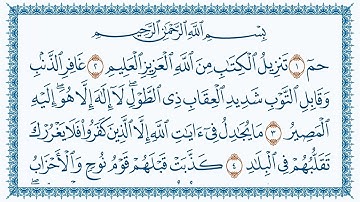 بِسْمِ ٱللَّهِ ٱلرَّحْمَٰنِ ٱلرَّحِيمِ
حمٓ ١ تَنزِيلُ ٱلْكِتَٰبِ مِنَ ٱللَّهِ ٱلْعَزِيزِ ٱلْعَلِيمِ ٢ غَافِرِ ٱلذَّنۢبِ
وَقَابِلِ ٱلتَّوْبِ شَدِيدِ ٱلْعِقَابِ ذِى ٱلطَّوْلِ ۖ لَآ إِلَٰهَ إِلَّا هُوَ ۖ إِلَيْهِ
ٱلْمَصِيرُ ٣ مَا يُجَٰدِلُ فِىٓ ءَايَٰتِ ٱللَّهِ إِلَّا ٱلَّذِينَ كَفَرُوا۟ فَلَا يَغْرُرْكَ
تَقَلُّبُهُمْ فِى ٱلْبِلَٰدِ ٤ كَذَّبَتْ قَبْلَهُمْ قَوْمُ نُوحٍ وَٱلْأَحْزَابُ